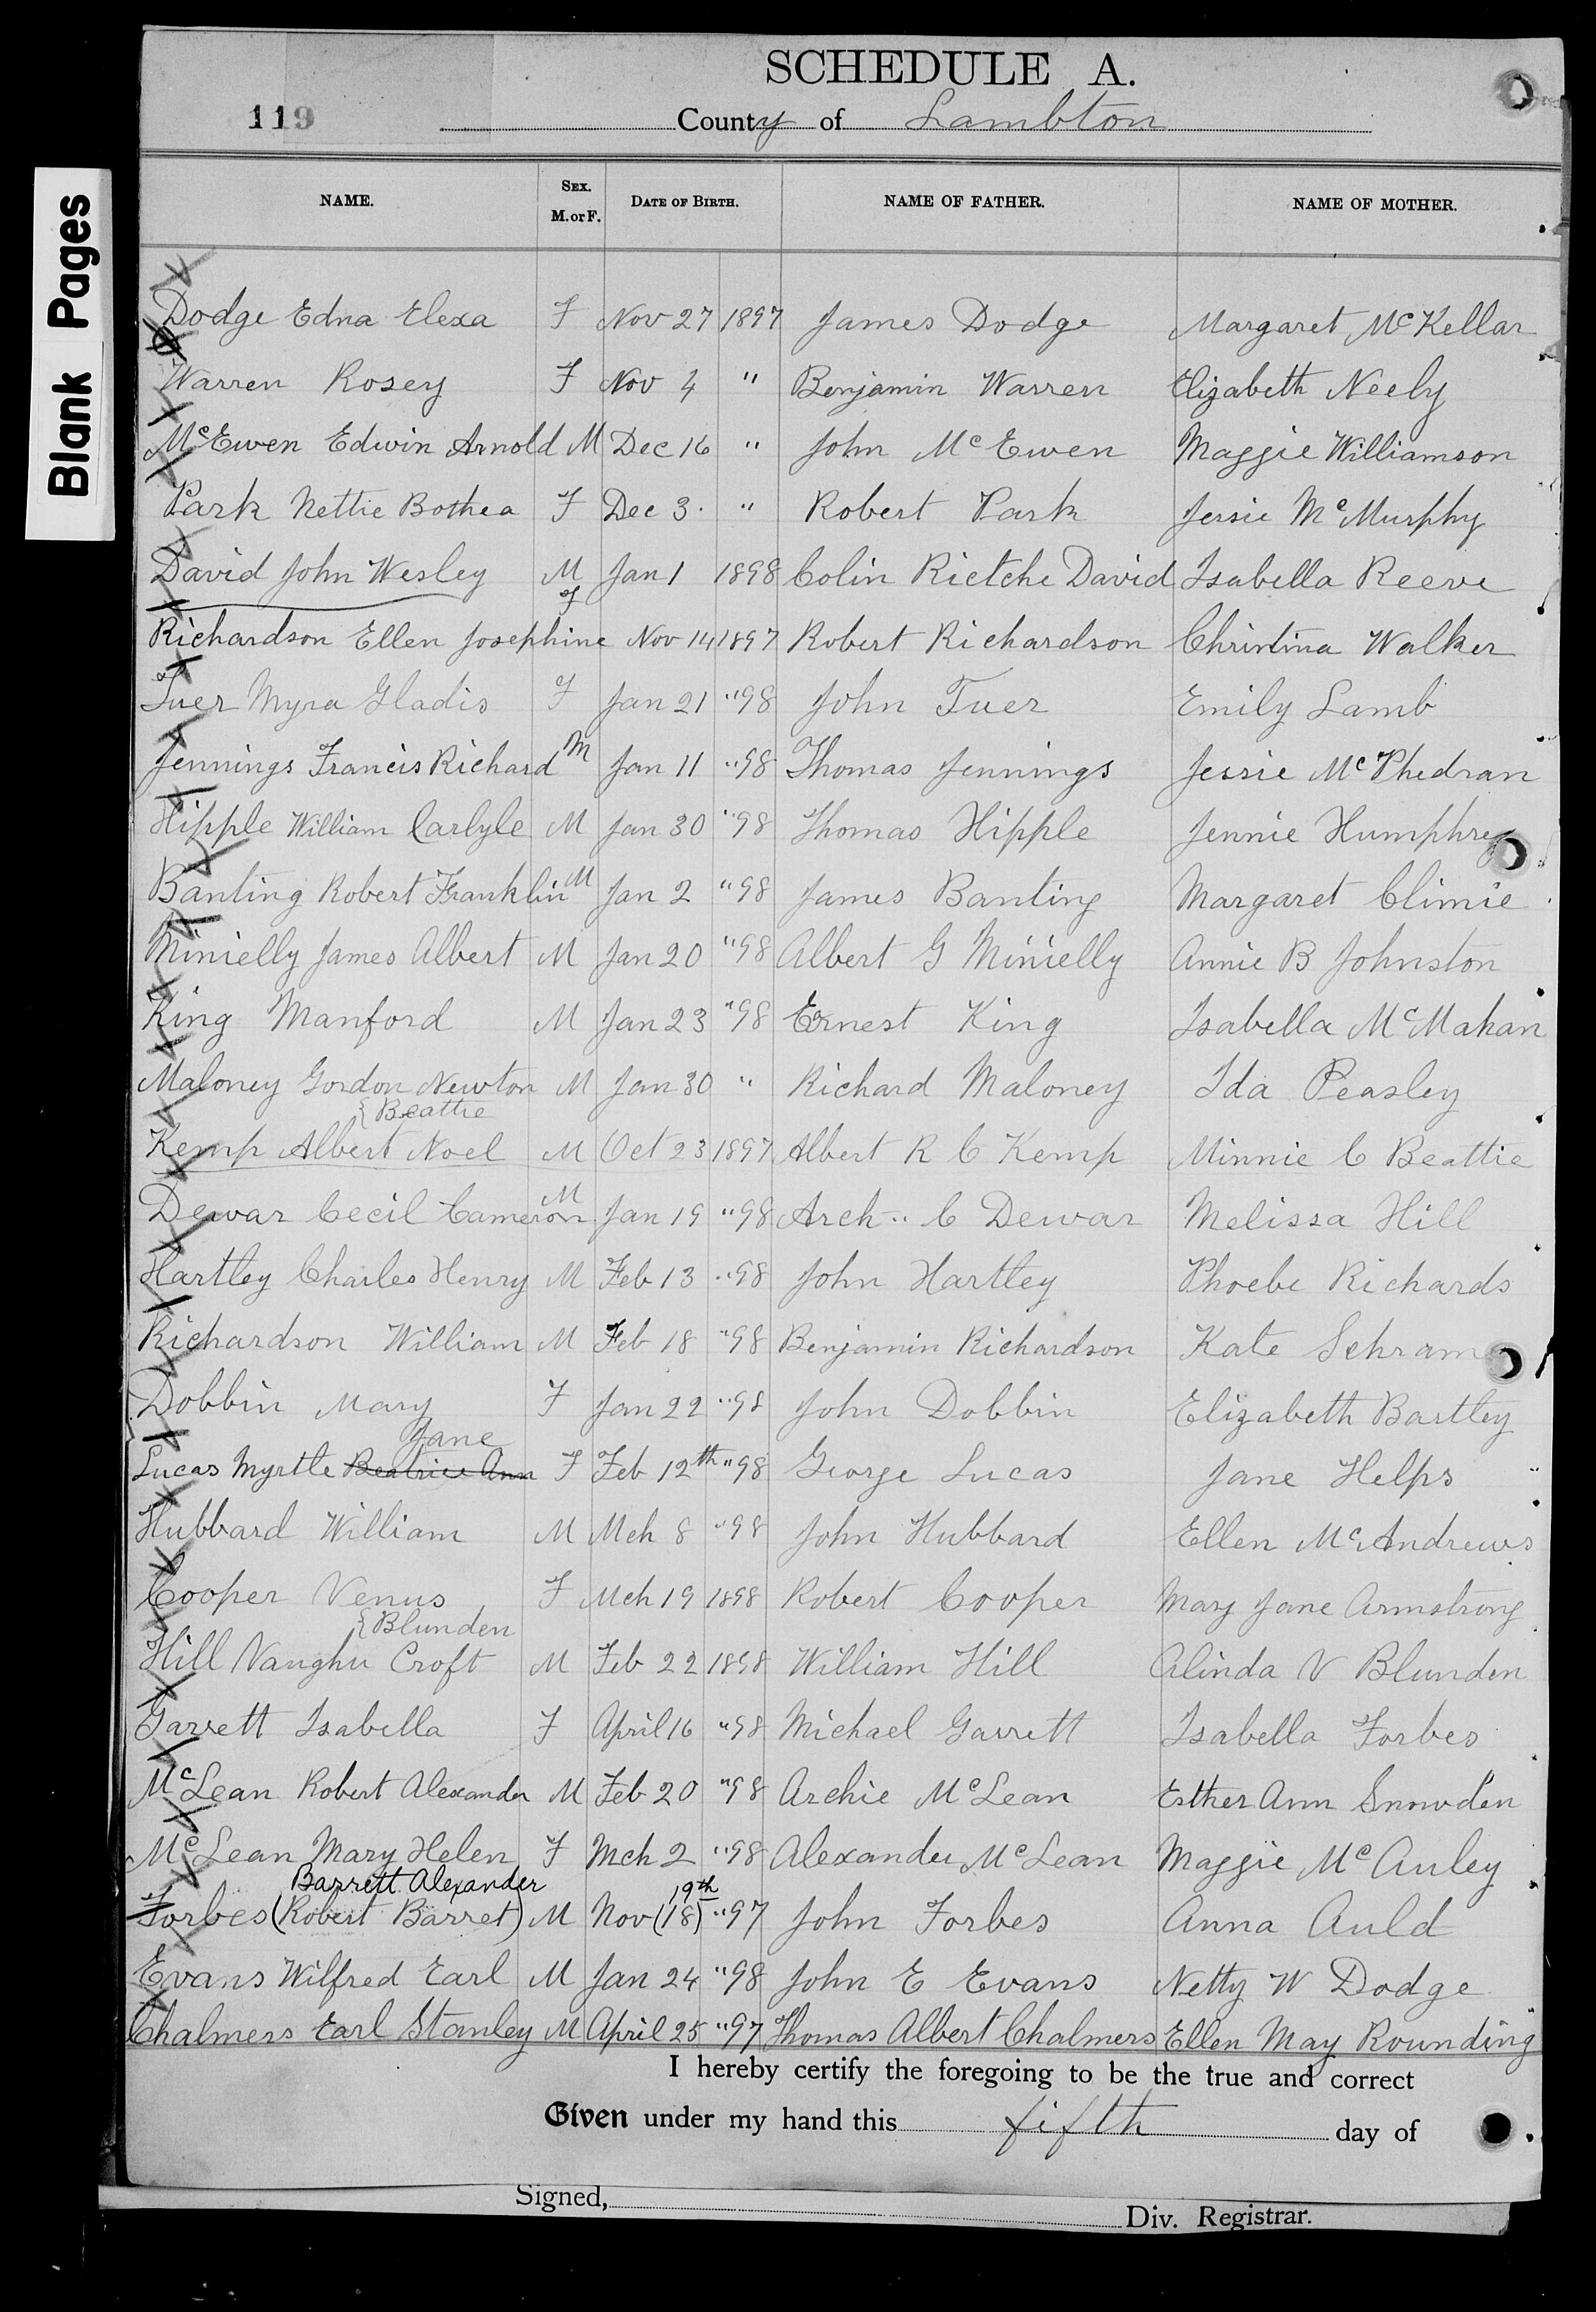 SCHEDULE A.
119
County of Lambton
Blank Pages
NAME. SEX. M. or F. DATE OF BIRTH. NAME OF FATHER. NAME OF MOTHER.
Dodge Edna Elexa F Nov 27 1897 James Dodge Margaret McKellar
Warren Rosey F Nov 4 " Benjamin Warren Elizabeth Neely
McEwen Edwin Arnold M Dec 16 " John McEwen Maggie Williamson
Park Nettie Bothea F Dec 3. " Robert Park Jessie McMurphy
David John Wesley M Jan 1 1898 Colin Rietche David Isabella Reeve
Richardson Ellen Josephine F Nov 14 1897 Robert Richardson Christina Walker
Tuer Myra Gladis F Jan 21 "98 John Tuer Emily Lamb
Jennings Francis Richard M Jan 11 "98 Thomas Jennings Jessie McPhedran
Hipple William Carlyle M Jan 30 "98 Thomas Hipple Jennie Humphrey
Banting Robert Franklin M Jan 2 "98 James Banting Margaret Climie
Minielly James Albert M Jan 20 "98 Albert G Minielly Annie B Johnston
King Manford M Jan 23 "98 Ernest King Isabella McMahan
Maloney Gordon Newton M Jan 30 " Richard Maloney Ida Peasley
{Beattie
Kemp Albert Noel M Oct 23 1897 Albert R C Kemp Minnie C Beattie
Dewar Cecil Cameron M Jan 19 "98 Arch" C Dewar Melissa Hill
Hartley Charles Henry M Feb 13 "98 John Hartley Phoebe Richards
Richardson William M Feb 18 "98 Benjamin Richardson Kate Schram
Dobbin Mary F Jan 22 "98 John Dobbin Elizabeth Bartley
Jane
Lucas Myrtle Beatrice Ann F Feb 12th "98 George Lucas Jane Helps
Hubbard William M Mch 8 "98 John Hubbard Ellen McAndrews
Cooper Venus F Mch 19 1898 Robert Cooper Mary Jane Armstrong
{Blunden
Hill Vaughn Croft M Feb 22 1898 William Hill Alinda V Blunden
Garrett Isabella F April 16 "98 Michael Garrett Isabella Forbes
McLean Robert Alexander M Feb 20 "98 Archie McLean Esther Ann Snowden
McLean Mary Helen F Mch 2 "98 Alexander McLean Maggie McAuley
Barrett Alexander 19th
Forbes (Robert Barret) M Nov (18) "97 John Forbes Anna Auld
Evans Wilfred Earl M Jan 24 "98 John E Evans Netty W Dodge
Chalmers Earl Stanley M April 25 "97 Thomas Albert Chalmers Ellen May Rounding
I hereby certify the foregoing to be the true and correct
Given under my hand this fifth day of
Signed, Div. Registrar.